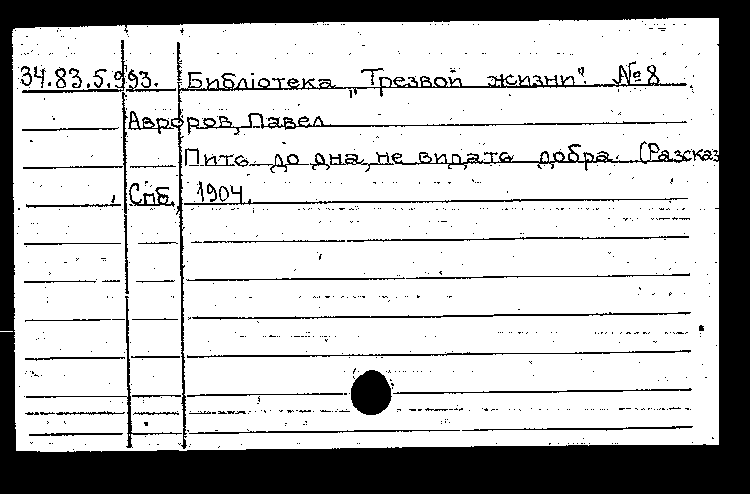 34.83.5.993. Библіотека „Трезвой жизни". № 8
Авроров, Павел
Пить до дна, не видать добра. (Разсказ
Спб., 1904.